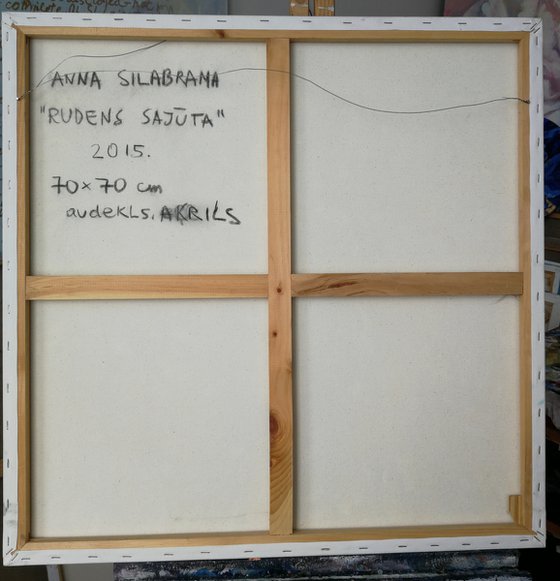 ANNA SILABRAMA
"RUDENS SAJŪTA"
2015.
70×70 cm
audekls, AKRILS